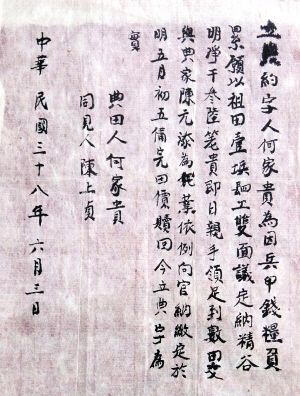 立典約字人何家貴為因兵甲錢糧負
累願以祖田壹坵細工雙面議定納精谷
明淨干叁陸籮貴即日親手領足到數田交
與典家陳元添為耕業依例向官納繳定於
明五月初五備完田價贖回今立典字為
實
典田人何家貴
同見人陳上貞
中華民國三十八年六月三日